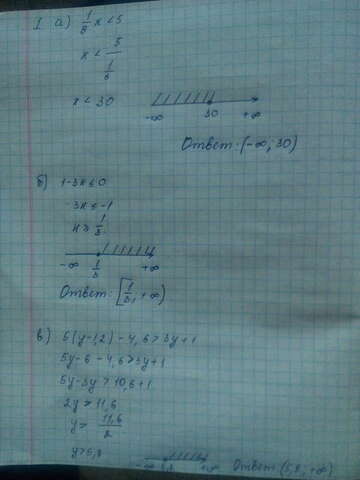 1 а) 1/6 x < 5
x < 5 / 1/6
x < 30
-∞ 30 +∞
Ответ: (-∞; 30)
б) 1-3x ≤ 0
-3x ≤ -1
x ≥ 1/3
-∞ 1/3 +∞
Ответ: [1/3; +∞)
в) 5(y-1,2) - 4,6 > 3y+1
5y-6-4,6 > 3y+1
5y-3y > 10,6+1
2y > 11,6
y > 11,6/2
y > 5,8
-∞ +∞ Ответ (5,8; +∞)